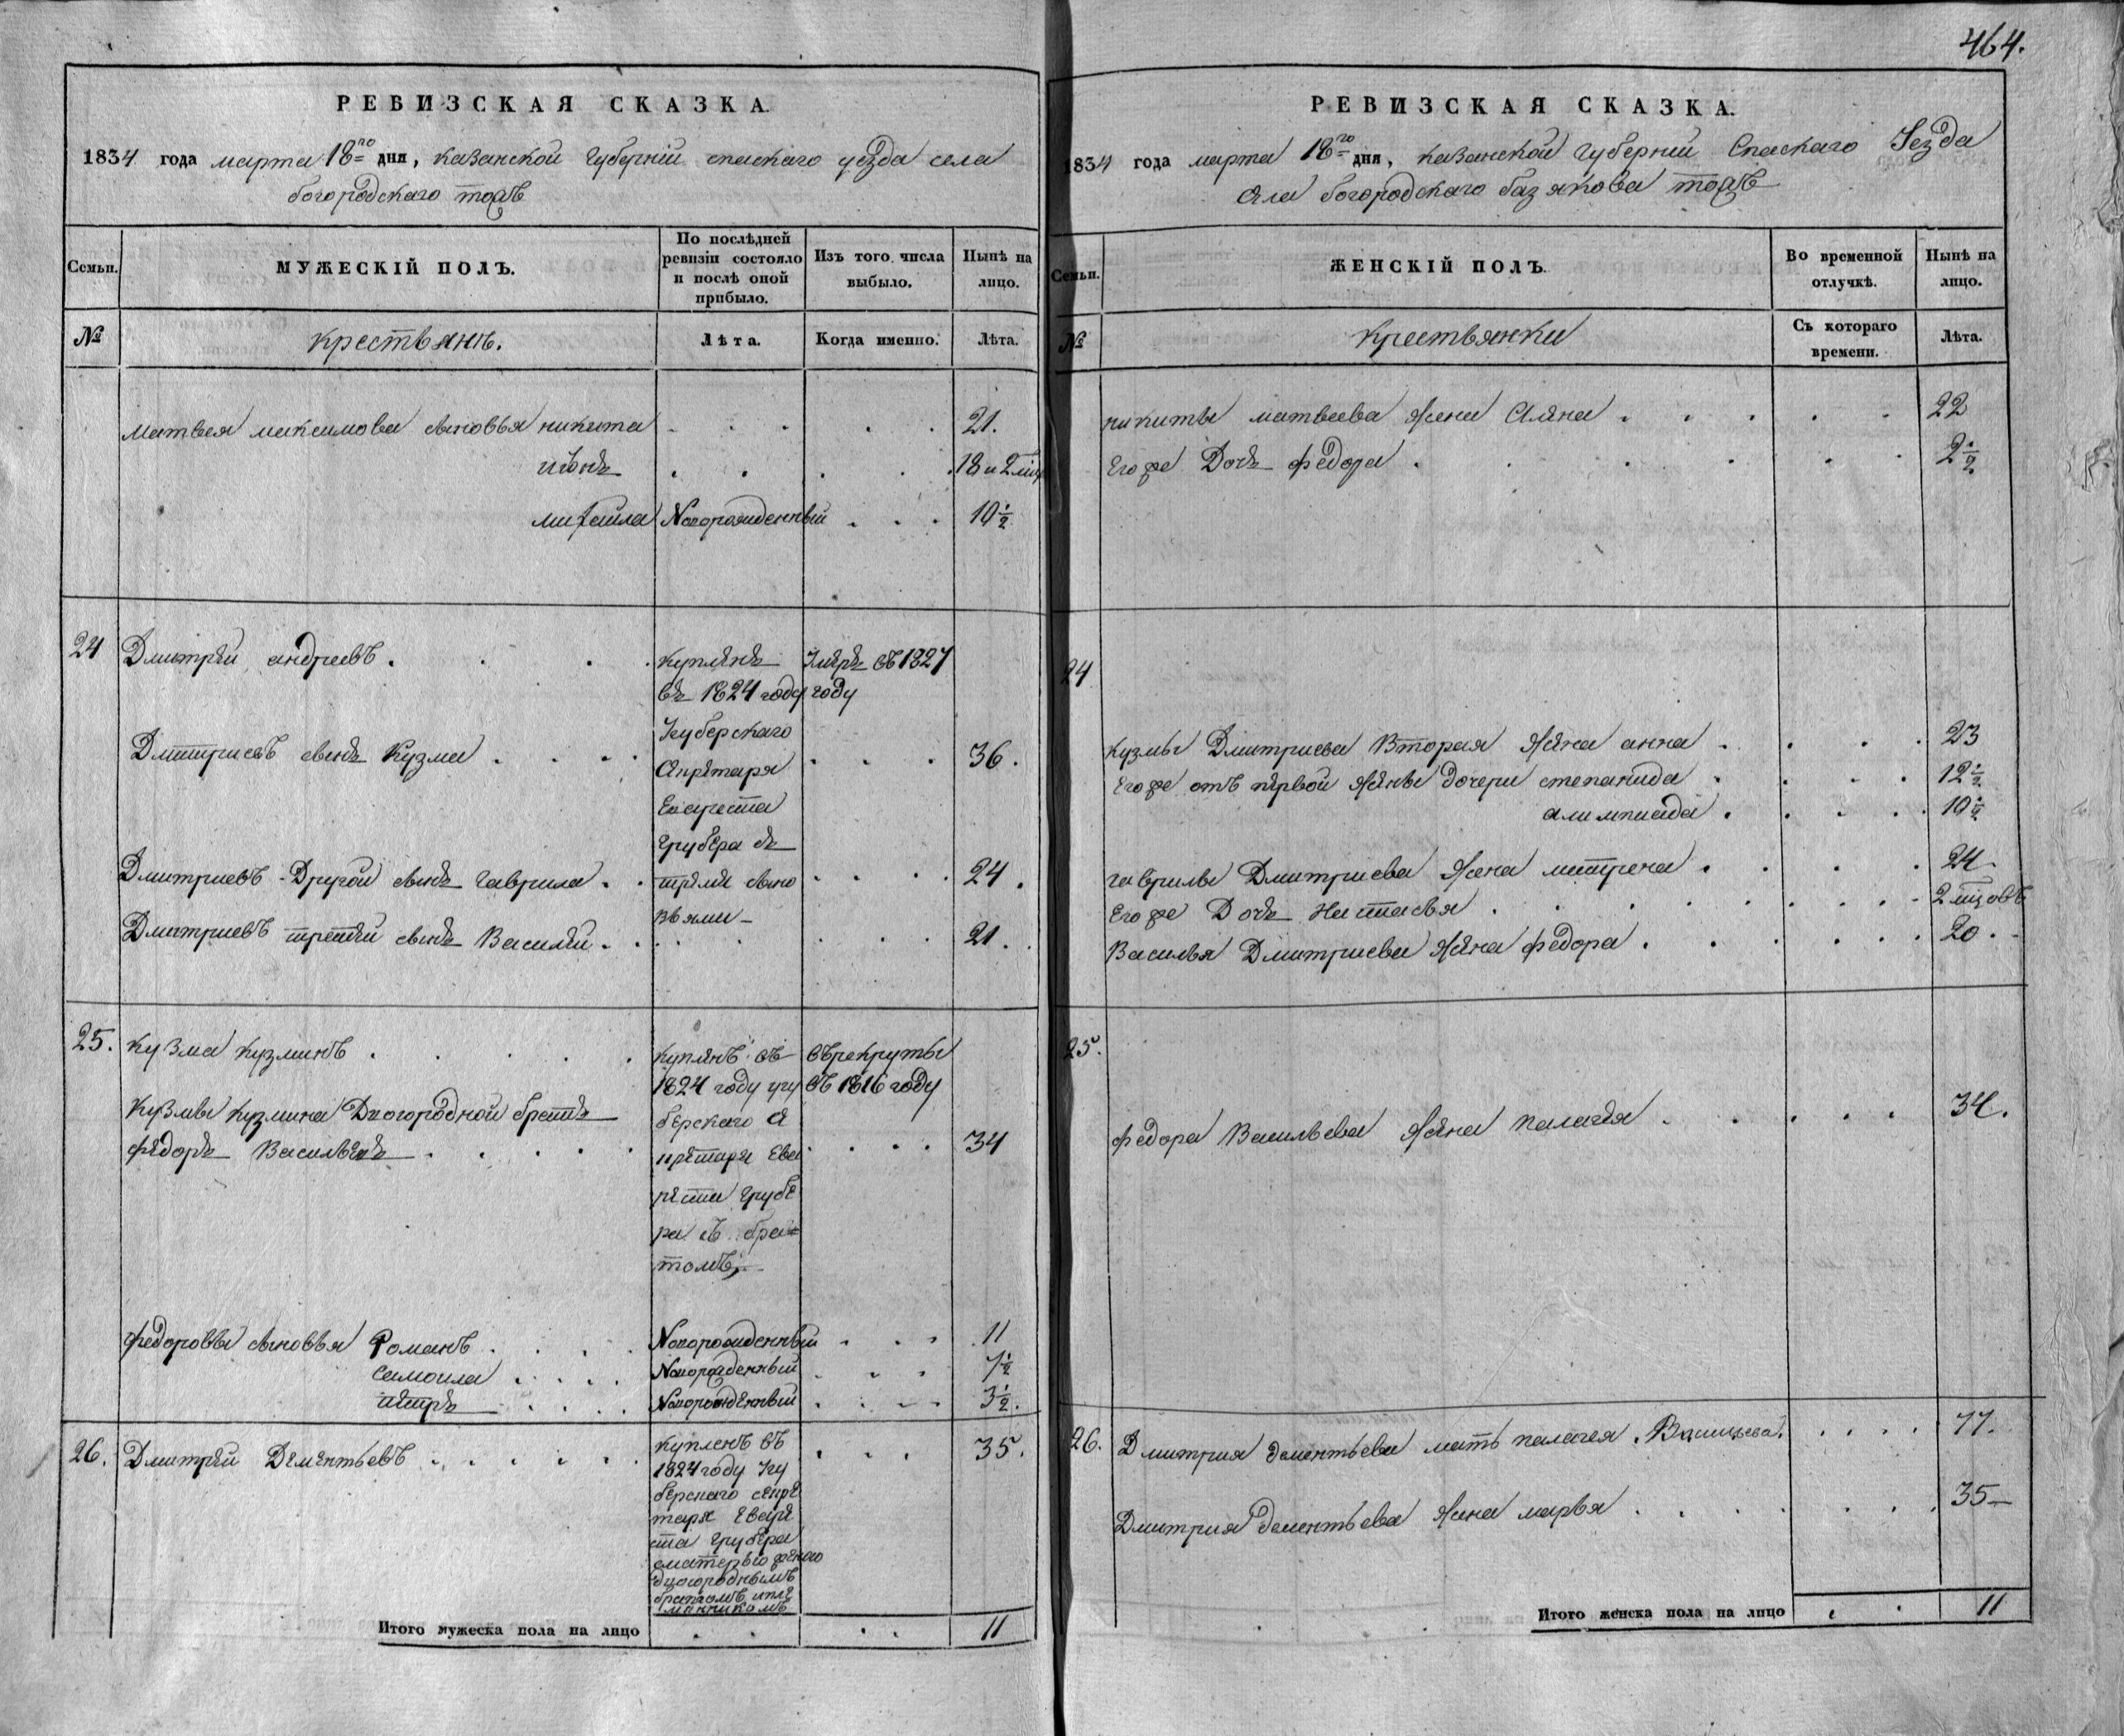 464.
РЕВИЗСКАЯ СКАЗКА.
1834 года марта 18го дня, казанской губернiи спаскаго уезда села
богородского тожъ
Семьи.
МУЖЕСКIЙ ПОЛЪ.
По послѣдней ревизiи состояло и послѣ оной прибыло.
Изъ того числа выбыло.
Нынѣ на лицо.
№
крестьянъ.
Лѣта.
Когда именно.
Лѣта.
матвея максимова сыновья никита 21.
18 и 2
михайла Новорожденный 10½
24 Дмитрѣй андреевъ куплѣнъ Умѣръ въ 1827
въ 1824 году году
Губерскаго
Дмитриевъ сынъ Кузма 36.
Сикрѣтаря
Еварѣста
Грубера съ
Дмитриевъ Другой сынъ гаврила трѣмя сыно 24.
вьями
Дмитриевъ третѣй сынъ Василѣй 21.
25. кузма кузминъ куплѣнъ въ въ рекруты
1824 году угу въ 1816 году
Кузмы кузмина Двогородной братъ бѣрскаго си
фѣдоръ Васильевъ крѣтаря Ева 34
рѣста грубѣ
ра съ бра
томъ,
федоровы сыновья Романъ Новорожденный 11
самоила Новорожденный 7½
пѣтръ Новорождѣнный 3½.
26. Дмитрѣй Дѣмѣнтьевъ купленъ въ 35.
1824 году Гу
бѣрскаго секрѣ
таря Еварѣ
ста грубѣра
сматерью женою
двоюроднымъ
братомъ иплѣ
мянникомъ
Итого мужеска пола на лицо 11
РЕВИЗСКАЯ СКАЗКА.
1834 года марта 18го дня, казанской губернiи Спаскаго Уезда
села богородскаго базякова тожъ
Семьи.
ЖЕНСКIЙ ПОЛЪ.
Во временной отлучкѣ.
Нынѣ на лицо.
№
крестьянки
Съ котораго времени.
Лѣта.
никиты матвеева жена 22
Его же Дочь федора 2½
24
кузмы Дмитриева Вторая жѣна анна 23
Его же отъ пѣрвой жѣны дочери степанида 12½
алимпиада 10½
гаврилы Дмитриева жена матрена 24
Его же Дочь Настасья 2 мцовъ
Василья Дмитриева жѣна федора 20.
25.
федора Васильева жѣна палагѣя 34.
26. Дмитрия дементьева мать палагея Васильева. 77.
Дмитрия дементьева жена марья 35
Итого женска пола на лицо 11